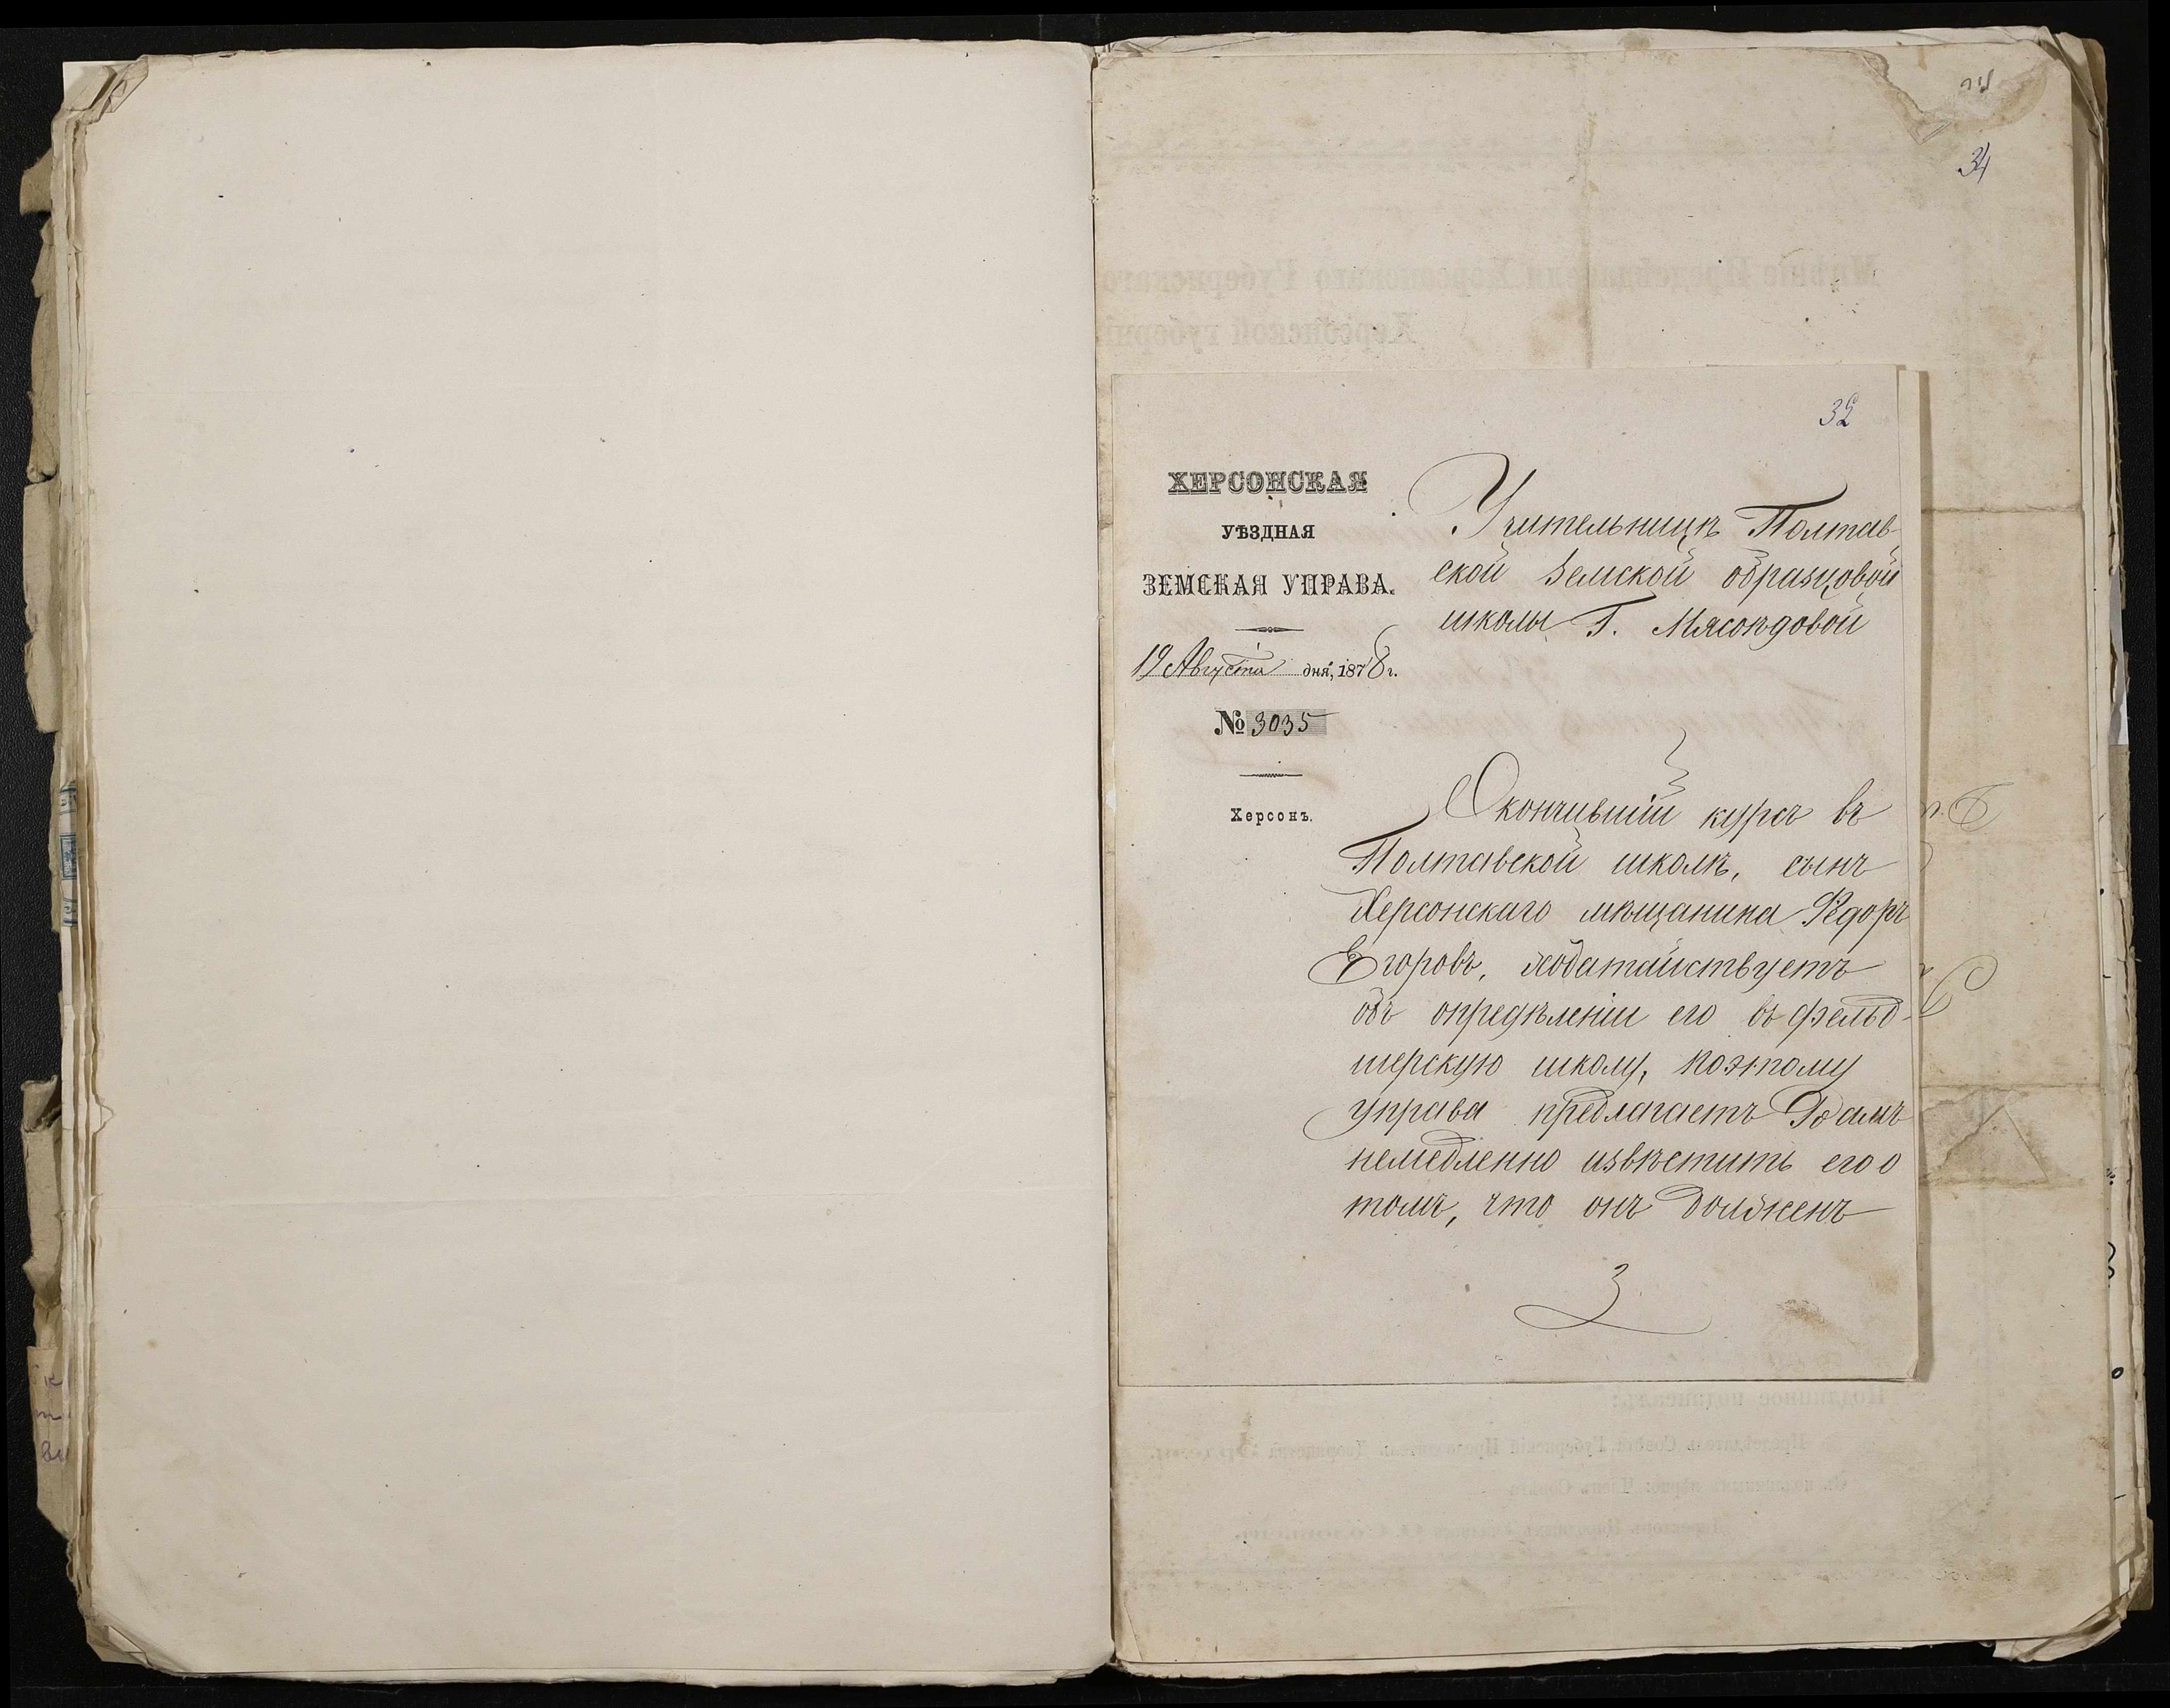 34
32
ХЕРСОНСКАЯ
УѢЗДНАЯ
ЗЕМСКАЯ УПРАВА.
19 Августа дня, 1878 г.
№ 3035
Херсонъ.
Учительницѣ Полтав-
ской Земской образцовой
школы Г. Мясоѣдовой
Окончившій курсъ въ
Полтавской школѣ, сынъ
Херсонскаго мѣщанина Ѳедоръ
Егоровъ, ходатайствуетъ
объ опредѣленіи его въ фельд-
шерскую школу, поэтому
управа предлагаетъ Вамъ
немедленно извѣстить его о
томъ, что онъ долженъ